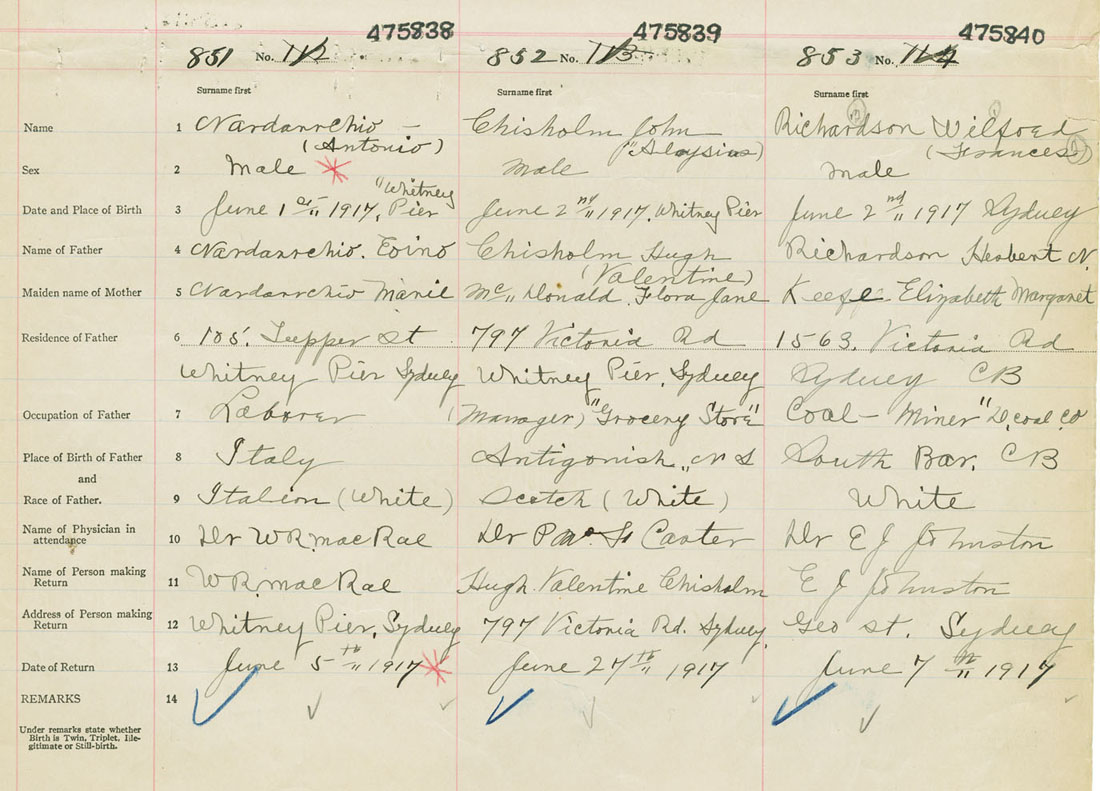 475838 475839 475840
851 No. 112 852 No. 113 853 No. 114
Surname first Surname first Surname first
Name 1 Nardarrchio – Chisholm John Richardson Wilfred
(Antonio) ("Aloysius) (Frances)
Sex 2 Male male male
"Whitney
Date and Place of Birth 3 June 1st 1917, Pier June 2nd 1917. Whitney Pier June 2nd 1917 Sydney
Name of Father 4 Nardarrchio. Chisholm Hugh Richardson Herbert N.
(Valentine)
Maiden name of Mother 5 Nardarrchio Mc Donald. Flora Jane Keefe Elizabeth Margaret
Residence of Father 6 105. Tupper St 797 Victoria Rd 1563. Victoria Rd
Whitney Pier Sydney Whitney Pier, Sydney Sydney CB
Occupation of Father 7 Laborer (Manager) "Grocery Store" Coal – Miner" D, coal, co
Place of Birth of Father 8 Italy Antigonish,, N S South Bar. CB
and
Race of Father. 9 Italion (White) Scotch (White) White
Name of Physician in
attendance 10 Dr W R. mac Rae Dr Carter Dr E J Johnston
Name of Person making
Return 11 W R. mac Rae Hugh Valentine Chisholm E J Johnston
Address of Person making
Return 12 Whitney Pier, Sydney 797 Victoria Rd. Sydney. Geo st. Sydney
Date of Return 13 June 5th 1917 June 27th 1917 June 7th 1917
REMARKS 14
Under remarks state whether
Birth is Twin, Triplet, Ille-
gitimate or Still-birth.